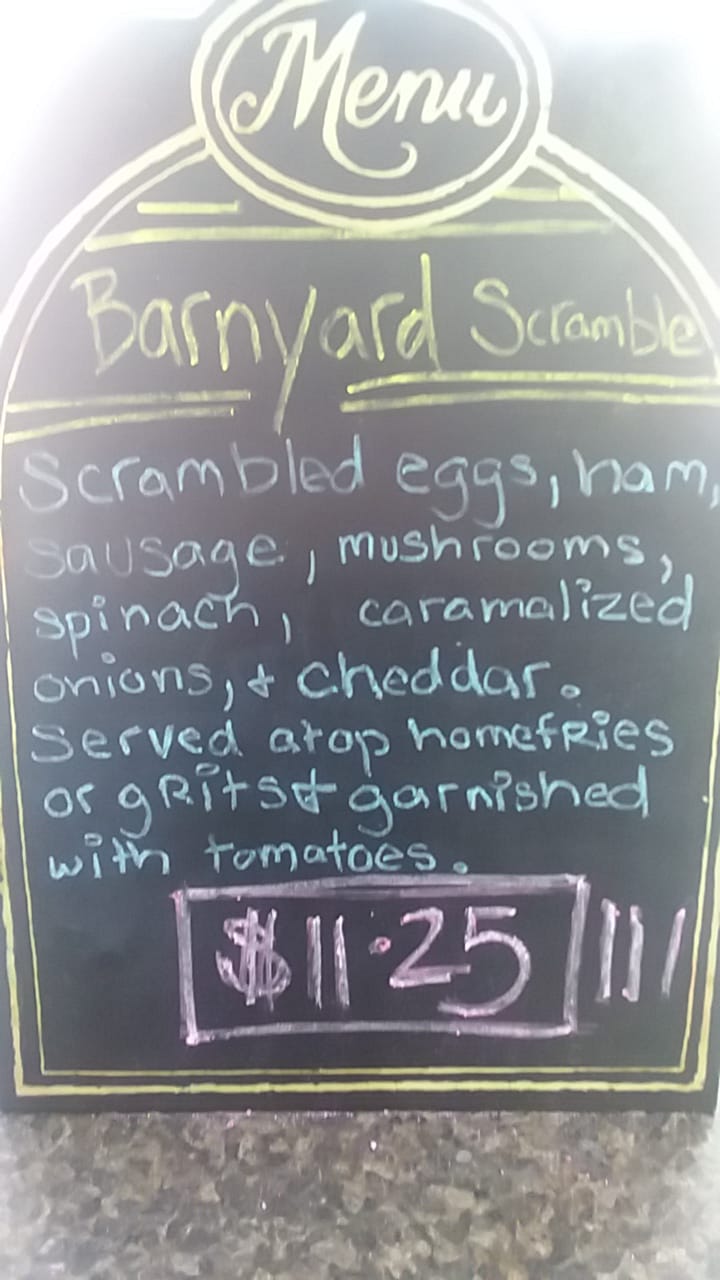 Menu
Barnyard Scramble
Scrambled eggs, ham,
sausage, mushrooms,
spinach, caramalized
onions, & cheddar.
Served atop homefries
or grits & garnished
with tomatoes.
$11.25